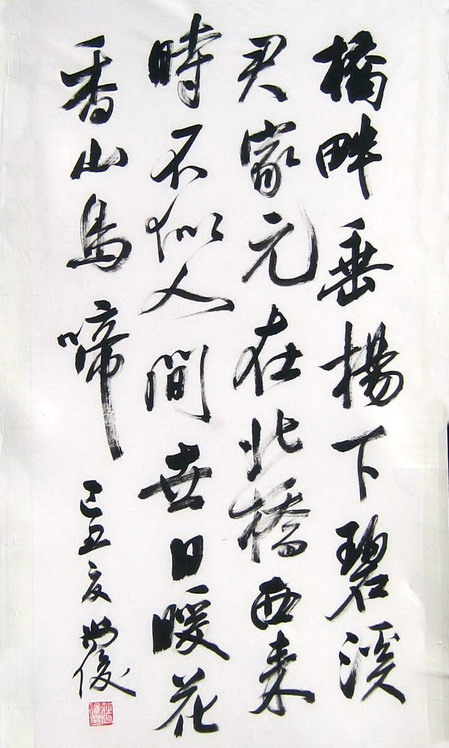 橋畔垂楊下碧溪
君家元在北橋西來
時不似人間世日暖花
香山鳥啼
己丑夏俊